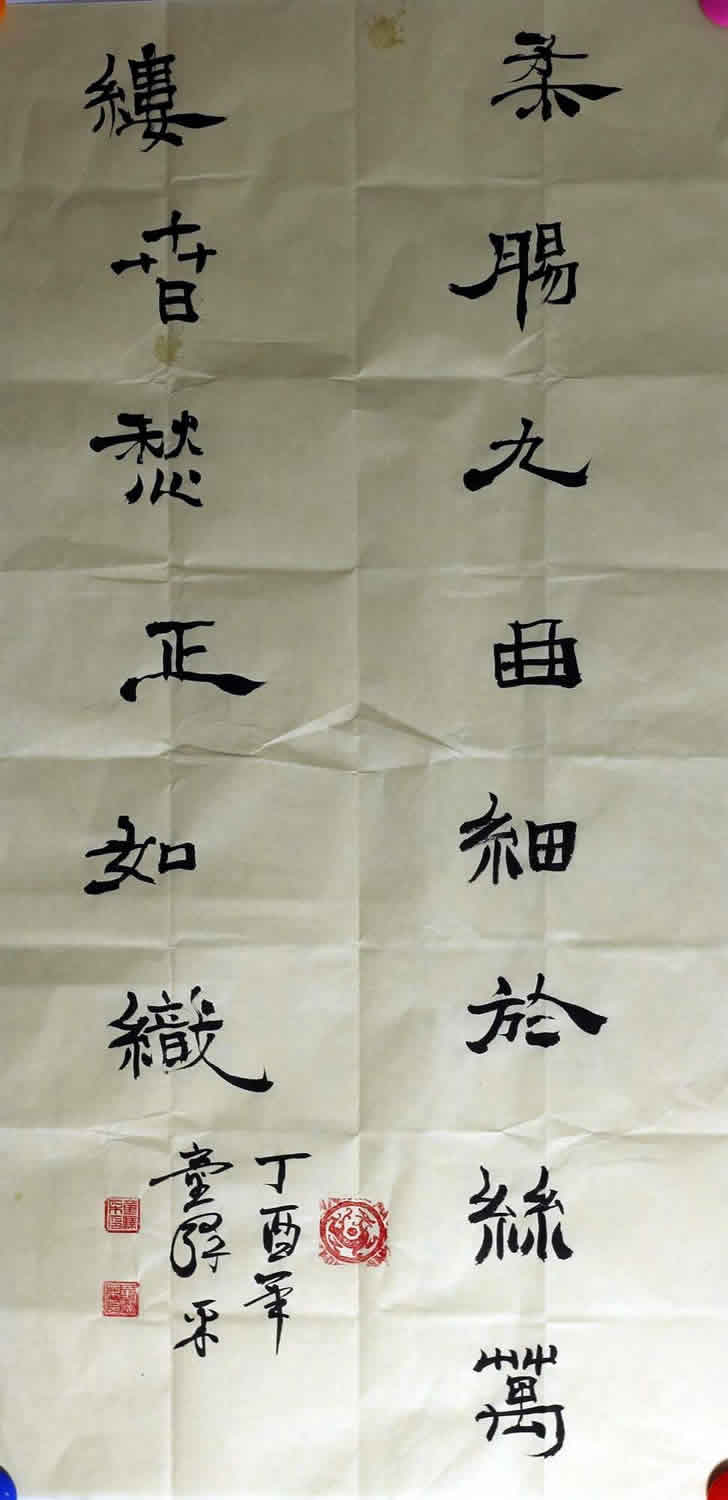 柔腸九曲細於絲萬
縷春愁正如織
丁酉年
童